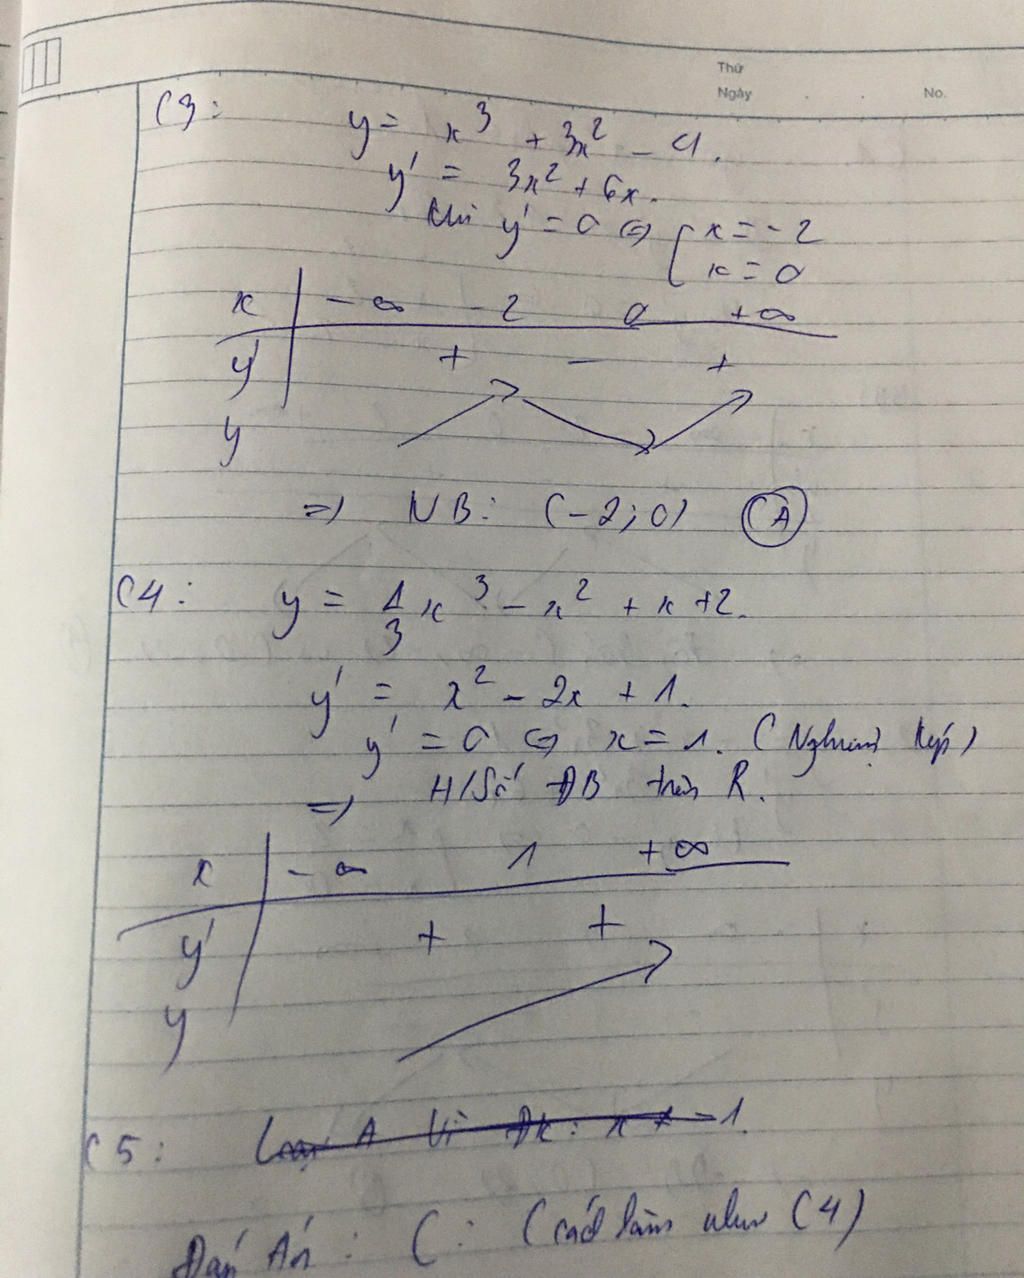 Thứ
Ngày . . No.
C3: y = x³ + 3x² - 4.
y' = 3x² + 6x.
khi y' = 0 ⇔ [ x = -2
x = 0
x | -∞ -2 0 +∞
y' + - +
y
=> NB: (-2; 0) (A)
C4: y = 1/3 x³ - x² + x + 2.
y' = x² - 2x + 1.
y' = 0 ⇔ x = 1. (Nghiệm kép)
=> H/Số ĐB trên R.
x | -∞ 1 +∞
y' + +
y
C5: Loại A Vì ĐK: x ≠ -1.
Đáp Án: C: (cách làm như C4)